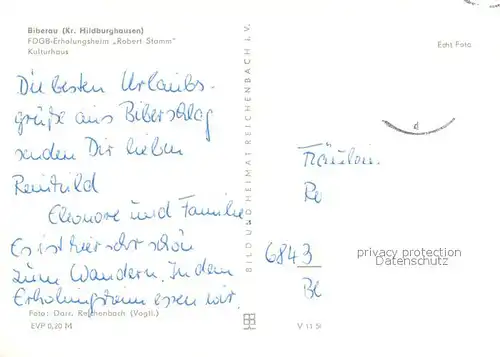 Biberau (Kr. Hildburghausen)
FDGB-Erholungsheim „Robert Stamm"
Kulturhaus
Echt Foto
Die besten Urlaubs-
grüße aus Biberschlag
senden Dir lieben
Reinhild
Eleonore und Familie
Es ist hier sehr schön
zum Wandern. In dem
Erholungsheim essen wir.
Foto: Darr, Reichenbach (Vogtl.)
EVP 0,20 M
BILD UND HEIMAT REICHENBACH I.V.
Fräulein
Re
6843
privacy protection
Datenschutz
Bl
V 11 5